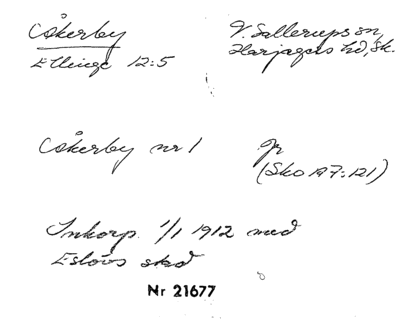 Åkerby V. Sallerups sn,
Ellinge 12:5 Harjagers hd, Sk.
Åkerby nr 1 Jr
(Sko A7:121)
Inkorp. 1/1 1912 med
Eslövs stad
Nr 21677